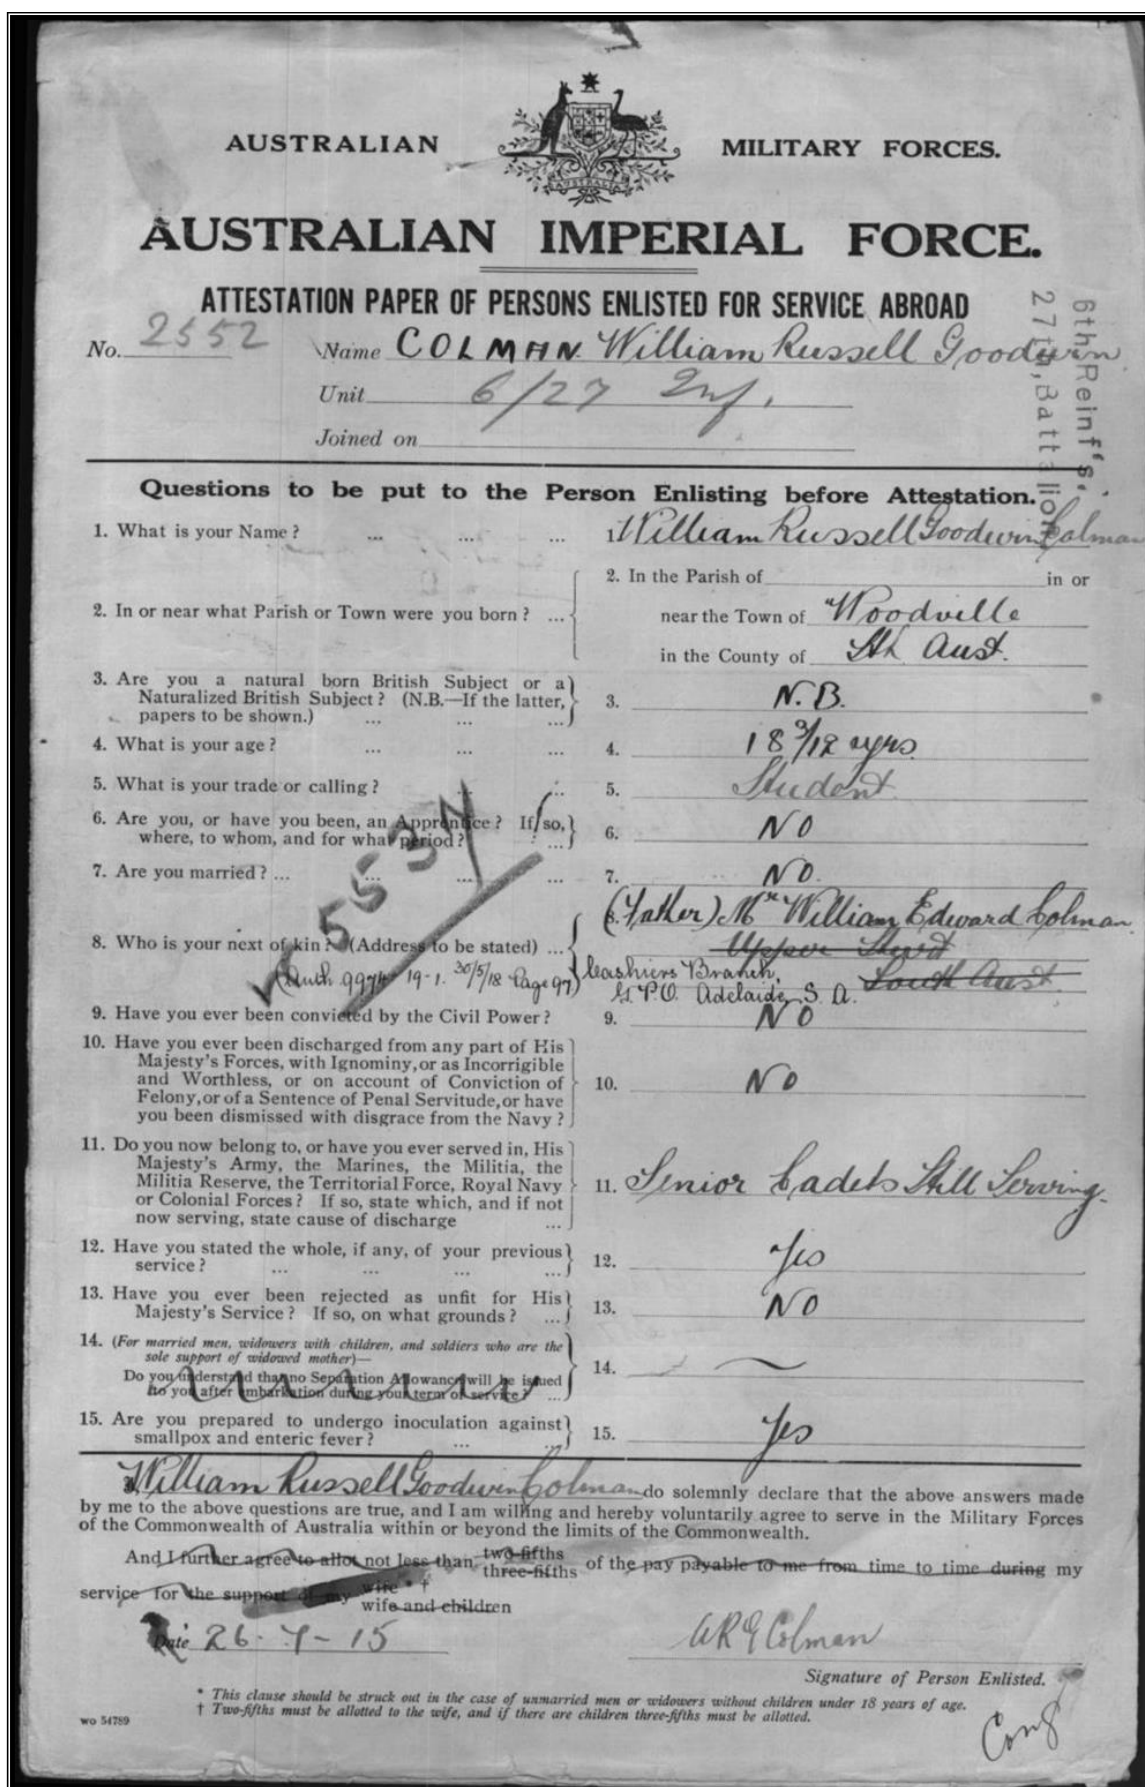 AUSTRALIAN MILITARY FORCES.
AUSTRALIA
AUSTRALIAN IMPERIAL FORCE.
ATTESTATION PAPER OF PERSONS ENLISTED FOR SERVICE ABROAD
No. 2552 Name COLMAN William Russell Goodwin
Unit 6/27 Inf.
Joined on
6th Reinf's.
27th, Battalion
Questions to be put to the Person Enlisting before Attestation.
1. What is your Name? ... ... ... 1. William Russell Goodwin Colman
2. In or near what Parish or Town were you born? ... 2. In the Parish of in or
near the Town of Woodville
in the County of Sth Aust.
3. Are you a natural born British Subject or a
Naturalized British Subject? (N.B.—If the latter,
papers to be shown.) ... ... ... 3. N.B.
4. What is your age? ... ... ... 4. 18 3/12 yrs.
5. What is your trade or calling? ... ... 5. Student
6. Are you, or have you been, an Apprentice? If so,
where, to whom, and for what period? ... 6. NO
7. Are you married? ... ... ... ... 7. NO.
8. Who is your next of kin? (Address to be stated) ... 8. (Father) Mr William Edward Colman
Upper Sturt
South Aust.
(Auth 19-1. 30/5/18 Page 97) Cashiers Branch,
G.P.O. Adelaide, S. A.
5537
9. Have you ever been convicted by the Civil Power? 9. NO
10. Have you ever been discharged from any part of His
Majesty's Forces, with Ignominy, or as Incorrigible
and Worthless, or on account of Conviction of
Felony, or of a Sentence of Penal Servitude, or have
you been dismissed with disgrace from the Navy? 10. NO
11. Do you now belong to, or have you ever served in, His
Majesty's Army, the Marines, the Militia, the
Militia Reserve, the Territorial Force, Royal Navy
or Colonial Forces? If so, state which, and if not
now serving, state cause of discharge ... 11. Senior Cadets Still Serving.
12. Have you stated the whole, if any, of your previous
service? ... ... ... ... 12. Yes
13. Have you ever been rejected as unfit for His
Majesty's Service? If so, on what grounds? ... 13. NO
14. (For married men, widowers with children, and soldiers who are the
sole support of widowed mother)—
Do you understand that no Separation Allowance will be issued
to you after embarkation during your term of service? ... 14. —
15. Are you prepared to undergo inoculation against
smallpox and enteric fever? ... ... 15. Yes
I, William Russell Goodwin Colman do solemnly declare that the above answers made
by me to the above questions are true, and I am willing and hereby voluntarily agree to serve in the Military Forces
of the Commonwealth of Australia within or beyond the limits of the Commonwealth.
And I further agree to allot not less than two-fifths
three-fifths of the pay payable to me from time to time during my
service for the support of my wife * †
wife and children
Date 26-7-15 WRG Colman
Signature of Person Enlisted.
* This clause should be struck out in the case of unmarried men or widowers without children under 18 years of age.
† Two-fifths must be allotted to the wife, and if there are children three-fifths must be allotted.
wo 54789